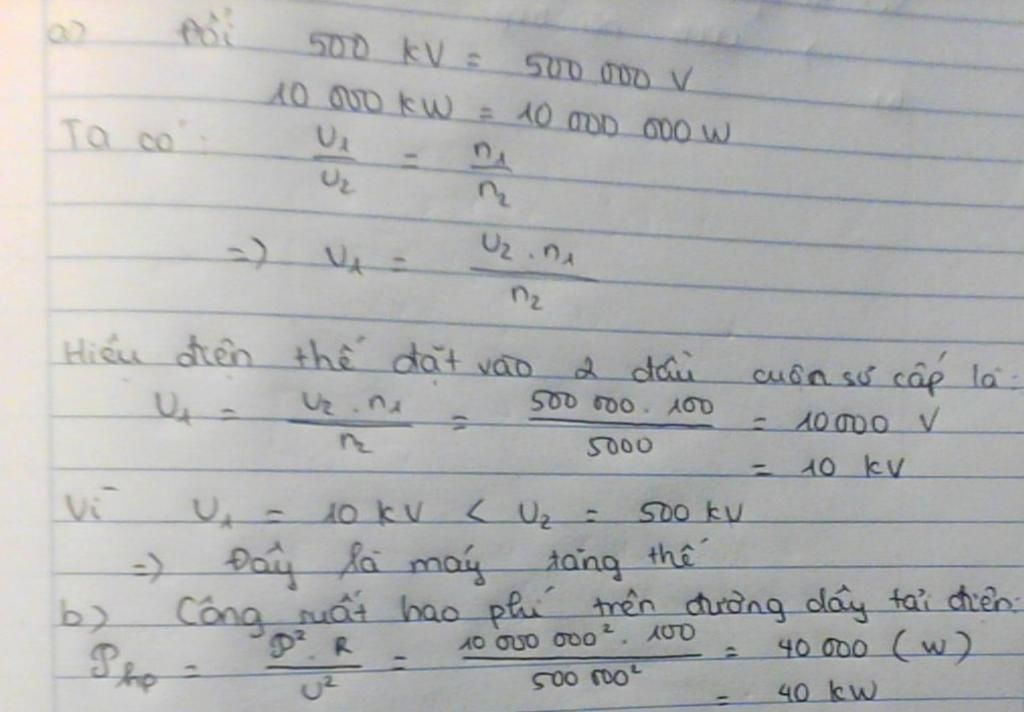 a) Đổi 500 kV = 500 000 V
10 000 kW = 10 000 000 W
Ta có: U₁/U₂ = n₁/n₂
=> U₁ = U₂ . n₁ / n₂
Hiệu điện thế đặt vào 2 đầu cuộn sơ cấp là:
U₁ = U₂ . n₁ / n₂ = 500 000 . 100 / 5000 = 10 000 V
= 10 kV
Vì U₁ = 10 kV < U₂ = 500 kV
=> Đây là máy tăng thế
b) Công suất hao phí trên đường dây tải điện:
𝒫hp = 𝒫² . R / U² = 10 000 000² . 100 / 500 000² = 40 000 (W)
= 40 kW